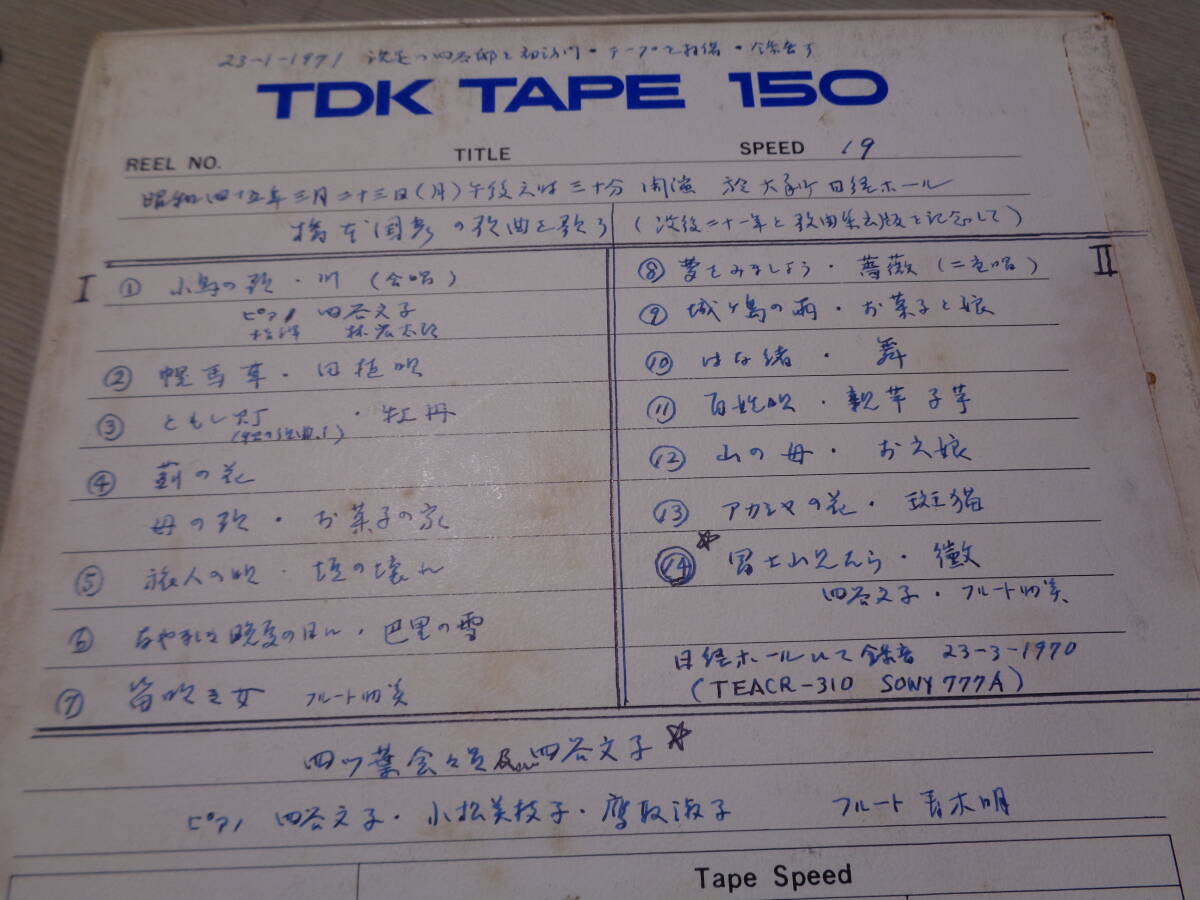 23-1-1971 四谷邸を初訪門・テープを拝借・録音す
TDK TAPE 150
REEL NO. TITLE SPEED 19
昭和四十五年三月二十三日(月)午後六時三十分 開演 於大手町日経ホール
橋本国彦の歌曲を歌う (没後二十一年と歌曲集出版を記念して)
I ① 小鳥の歌・川 (合唱)
ピアノ 四谷文子
指揮 林宏太郎
② 幌馬車・田植唄
③ ともしび・牡丹
④ 薊の花
母の歌・お菓子の家
⑤ 旅人の唄・垣の壊れ
⑥ あやめさく晩夏の日に・巴里の雪
⑦ 笛吹き女 フルート助奏
II
⑧ 夢をみましょう・薔薇 (二重唱)
⑨ 城ヶ島の雨・お菓子と娘
⑩ はな緒・舞
⑪ 百姓唄・親芋子芋
⑫ 山の母・お六娘
⑬ アカシヤの花・斑猫
⑭ 富士山見たら・黴
四谷文子・フルート助奏
日経ホールにて録音 23-3-1970
(TEACR-310 SONY 777A)
四ツ葉会々員及四谷文子 ☆
ピアノ 四谷文子・小松美枝子・鷹取淑子 フルート 青木明
Tape Speed